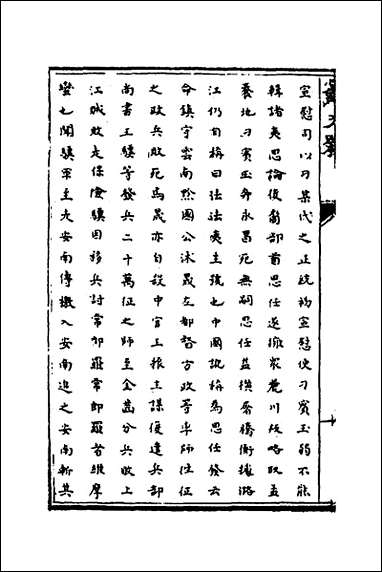 宣慰司以刀景代之正統初宣慰使刀賓玉弱不能
輯諸夷思論復奪部酋思任遂擁眾麓川攻略取孟
養地刀賓玉奔永昌死無嗣思任益橫屠騰衝據潞
江仍自稱曰法法夷王號也中國訛稱為思任發云
命鎮守雲南黔國公沐晟左都督方政等率師往征
之政兵敗死焉晟亦自殺中官王振主謀復遣兵部
尚書王驥等發兵二十萬征之師至金齒分兵攻上
江賊敗走保險驥因移兵討常郎羅常郎羅者維摩
蠻也聞驥軍至走安南傳檄入安南追之安南斬其